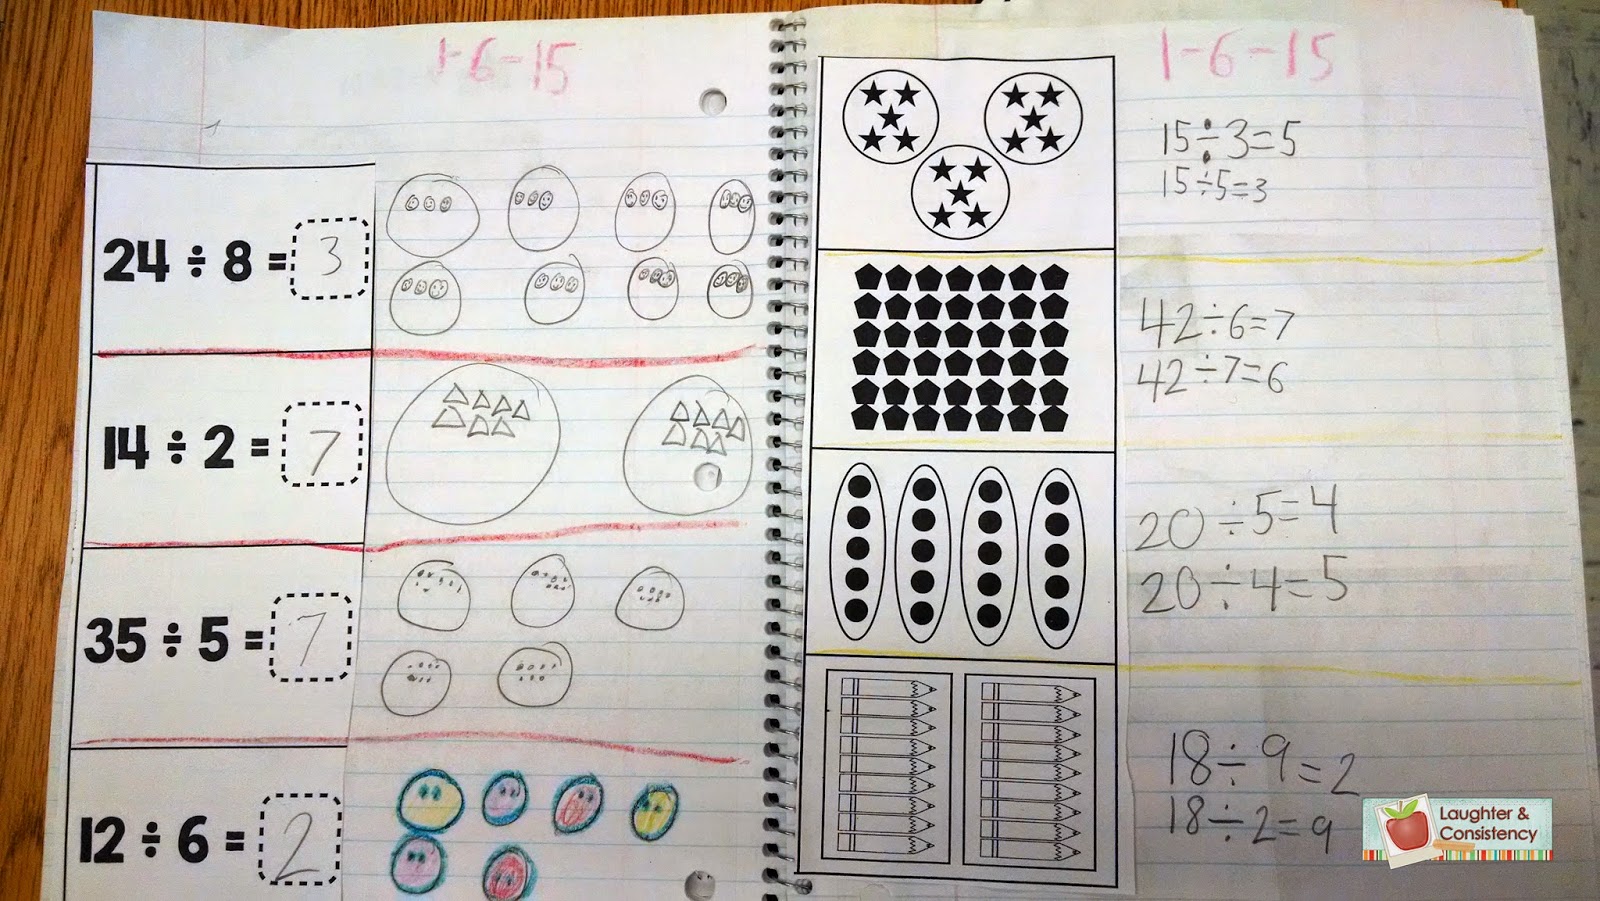 1-6-15
24 ÷ 8 = 3
14 ÷ 2 = 7
35 ÷ 5 = 7
12 ÷ 6 = 2
1-6-15
15÷3=5
15÷5=3
42÷6=7
42÷7=6
20÷5=4
20÷4=5
18÷9=2
18÷2=9
Laughter &
Consistency